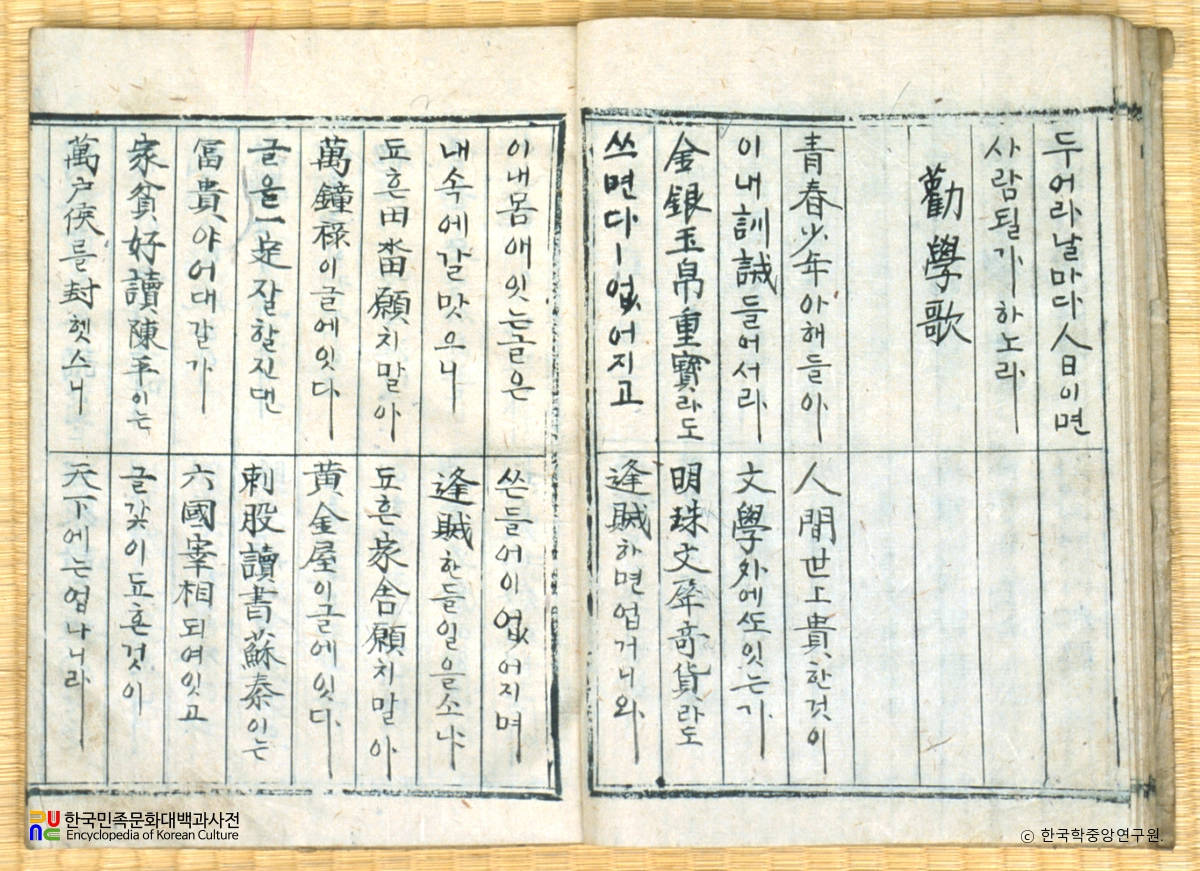 두어라날마다人日이면
사람될가하노라
勸學歌
青春少年아해들아
人間世上貴한것이
이내訓誡들어서라
文學外에또잇는가
金銀玉帛重寶라도
明珠文犀奇貨라도
쓰면다ㅣ업어지고
逢賊하면업거니와
이내몸애잇는글은
쓴들어이업어지며
내속에갈맛으니
逢賊한들일을소냐
됴흔田畓願치말아
됴흔家舍願치말아
萬鐘祿이글에잇다
黃金屋이글에잇다
글을一定잘할진댄
刺股讀書蘇秦이는
富貴야어대갈가
六國宰相되여잇고
家貧好讀陳平이는
글갓이됴흔것이
萬户侯를封헷스니
天下에는업나니라
한국민족문화대백과사전
Encyclopedia of Korean Culture
ⓒ 한국학중앙연구원.